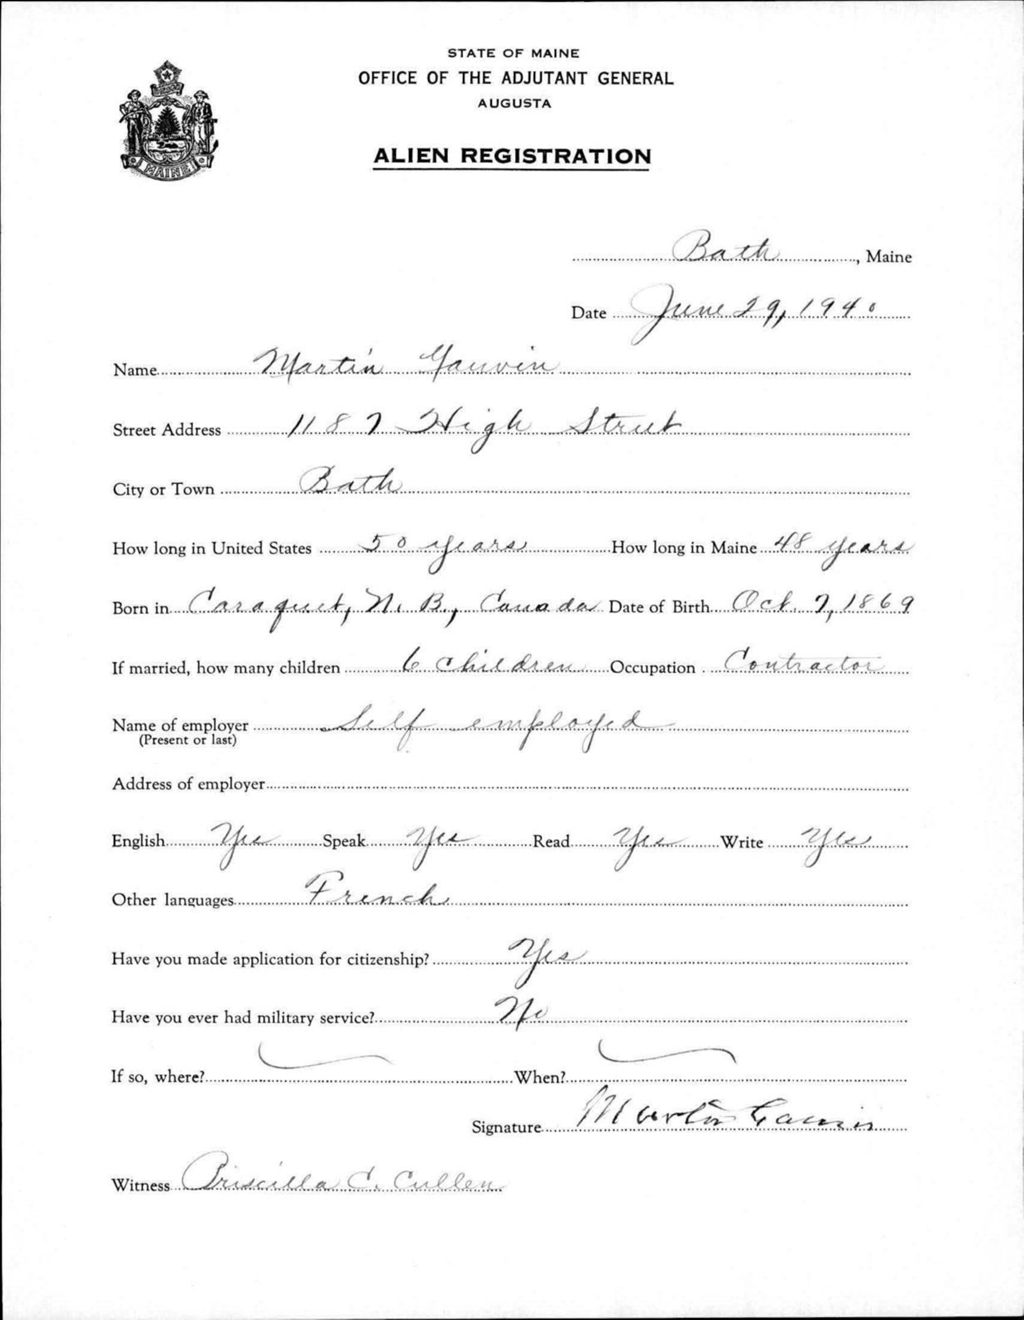 STATE OF MAINE
OFFICE OF THE ADJUTANT GENERAL
AUGUSTA
ALIEN REGISTRATION
MAINE
Bath, Maine
Date June 29, 1940
Name Martin Gauvin
Street Address 1187 High Street
City or Town Bath
How long in United States 50 years How long in Maine 48 years
Born in Caraquet, N. B., Canada Date of Birth Oct. 7, 1869
If married, how many children 6 children Occupation Contractor
Name of employer Self employed
(Present or last)
Address of employer
English Yes Speak Yes Read Yes Write Yes
Other languages French
Have you made application for citizenship? Yes
Have you ever had military service? No
If so, where? When?
Signature Martin Gauvin
Witness Priscilla C. Cullen